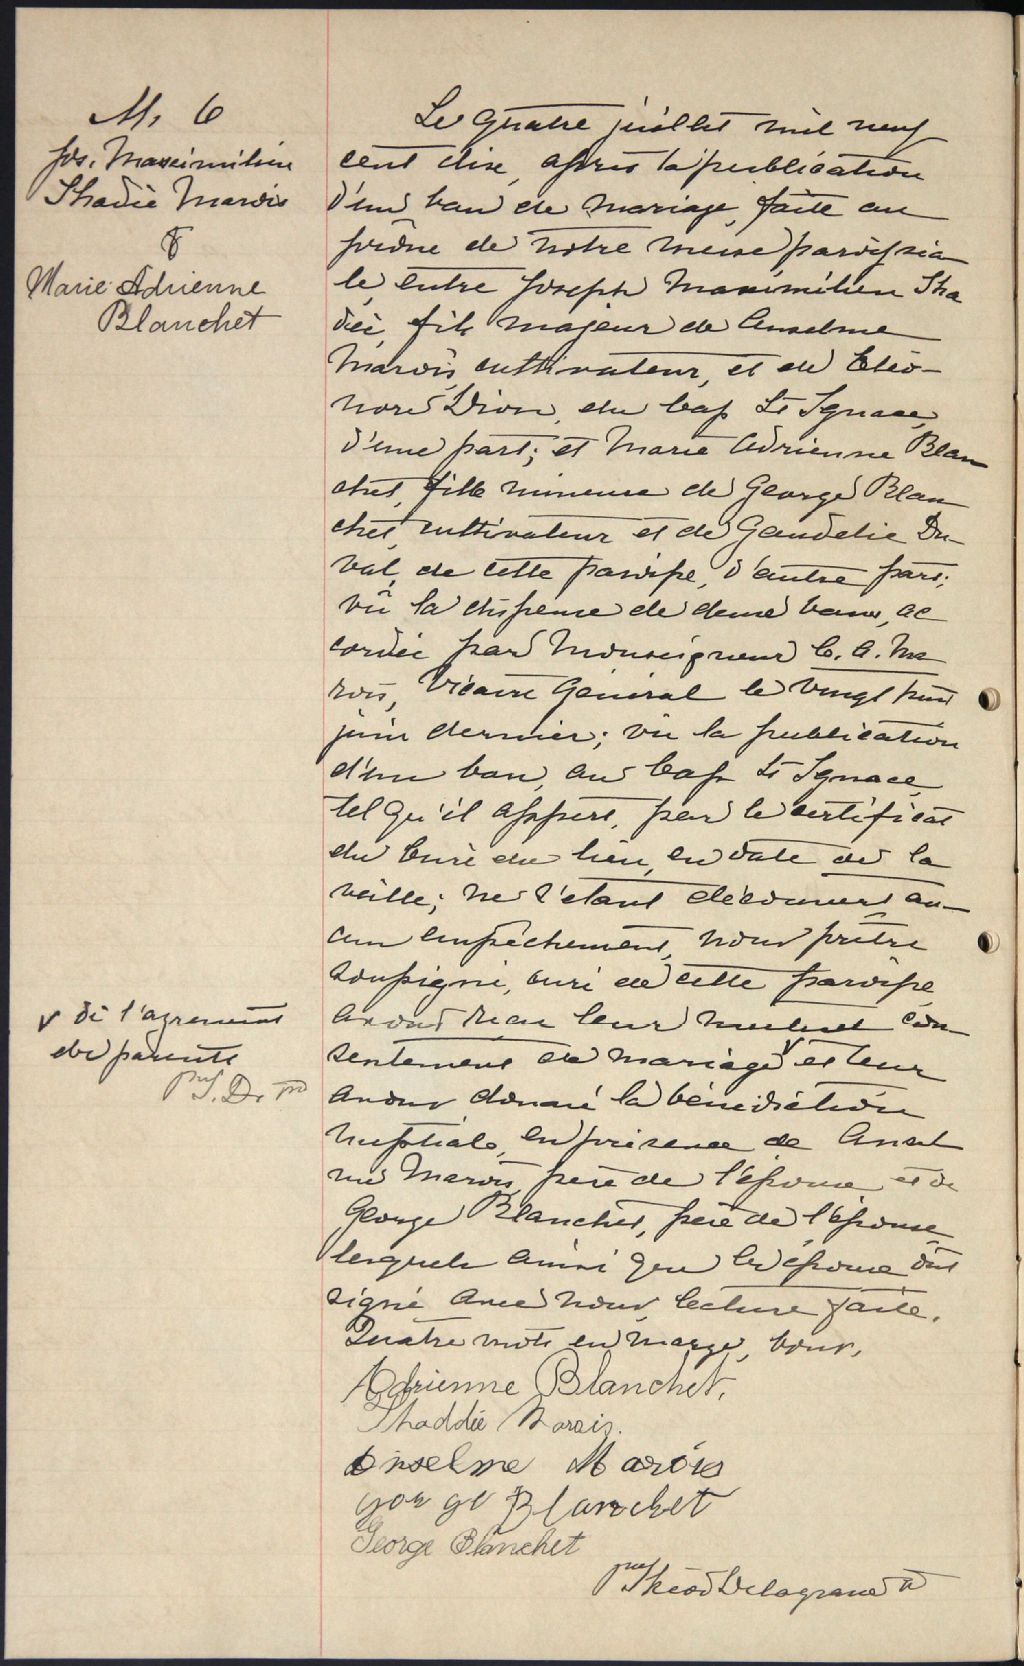 M. 6
Jos. Maximilien
Thadée Marois
&
Marie Adrienne
Blanchet
Le quatre juillet mil neuf
cent dix, après la publication
d'un ban de mariage, faite au
prône de notre messe paroissia
le, entre Joseph Maximilien Tha
dée, fils majeur de Anselme
Marois, cultivateur, et de Eléo-
nore Dion, du Cap St Ignace,
d'une part; et Marie Adrienne Blan
chet, fille mineure de George Blan
chet, cultivateur et de Gaudelie Du-
val, de cette paroisse, d'autre part;
vû la dispense de deux bans, ac
cordée par Monseigneur C. A. Ma
rois, Vicaire Général le vingt huit
juin dernier; vû la publication
d'un ban, au Cap St Ignace,
tel qu'il appert, par le certificat
du Curé du lieu, en date de la
veille; ne s'étant découvert au-
cun empêchement, nous prêtre
soussigné, curé de cette paroisse,
avons reçu leur mutuel con
sentement de mariage v et leur
avons donné la bénédiction
nuptiale, en présence de Ansel
me Marois, père de l'époux et de
George Blanchet, père de l'épouse,
lesquels ainsi que les époux ont
signé avec nous, lecture faite.
Quatre mots en marge, bons.
v de l'agrément
des parents
J. D. Ptre
Adrienne Blanchet.
Thaddée Marois.
Anselme Marois
gor ge Blanchet
George Blanchet
Théod Delagrave Ptre